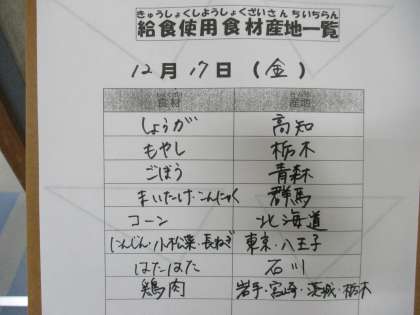 きゅうしょくしようしょくざいさんちいちらん
給食使用食材産地一覧
12月17日(金)
食材 産地
しょうが 高知
もやし 栃木
ごぼう 青森
まいたけ・こんにゃく 群馬
コーン 北海道
にんじん・小松菜・長ねぎ 東京・八王子
はたはた 石川
鶏肉 岩手・宮崎・茨城・栃木